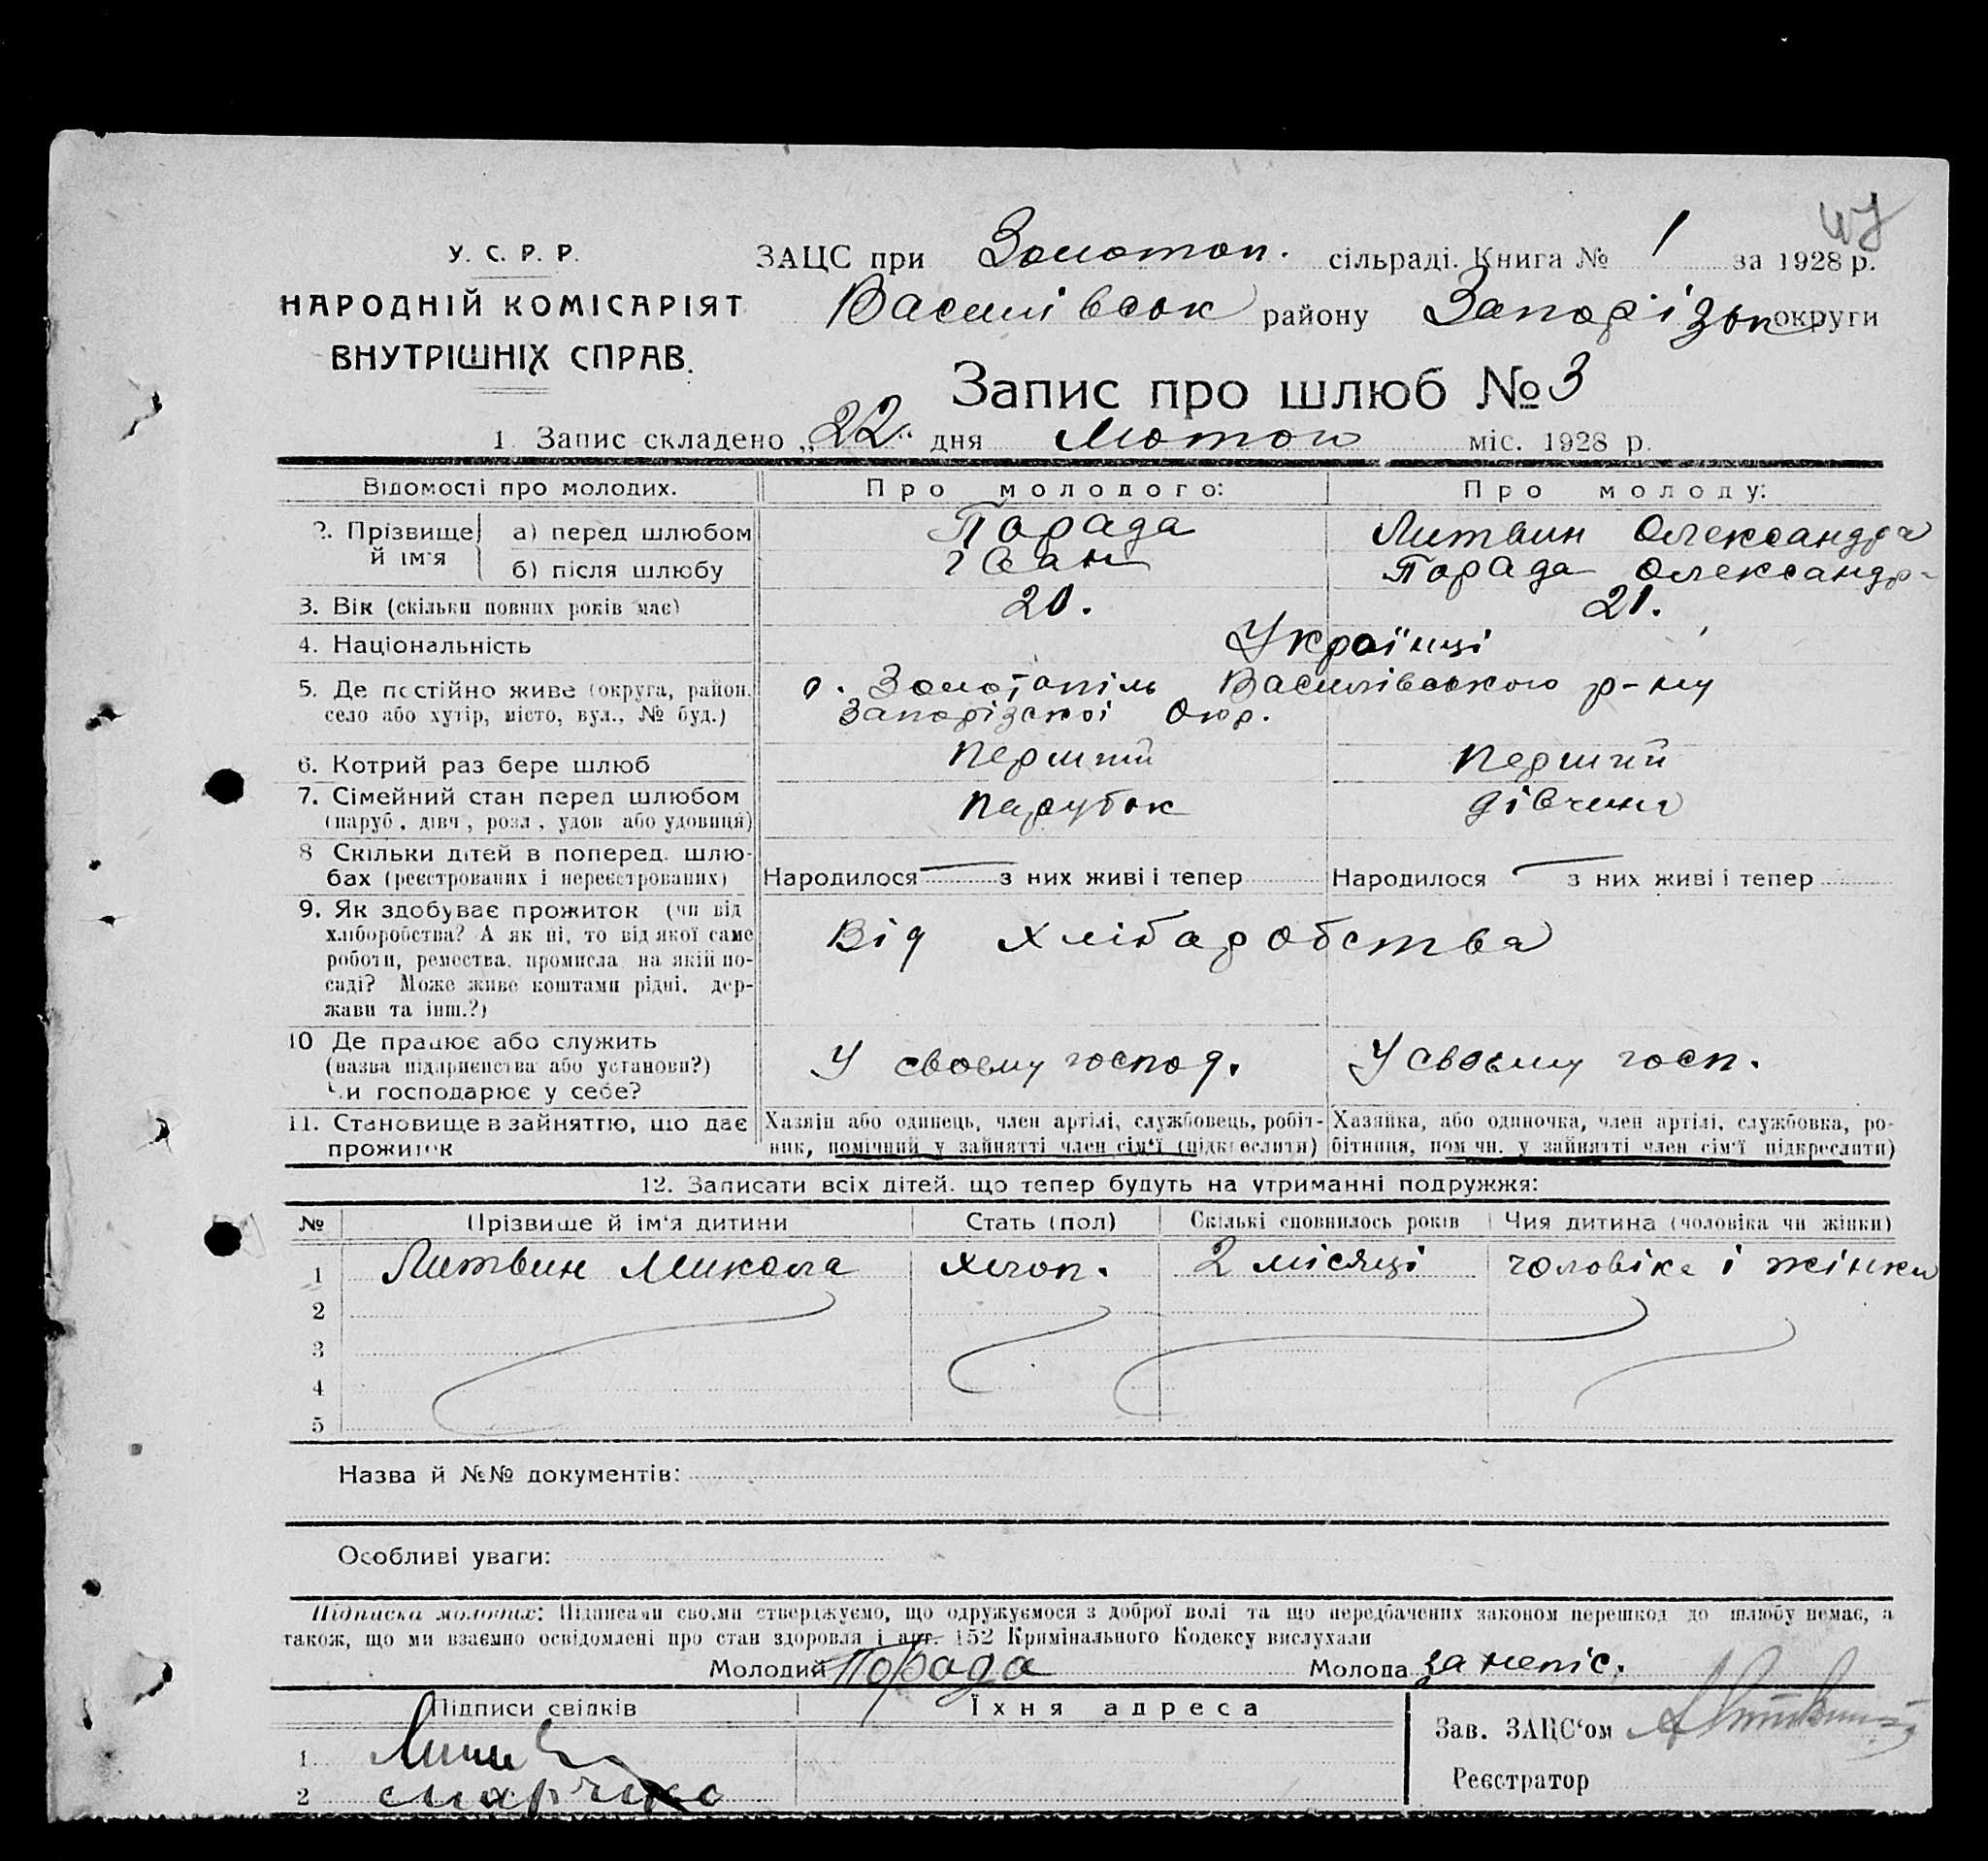 У. С. Р. Р.
НАРОДНІЙ КОМІСАРІЯТ
ВНУТРІШНІХ СПРАВ.
ЗАЦС при Золотоп. сільраді. Книга № 1 за 1928 р.
Василівськ району Запорізьк округи
Запис про шлюб № 3
1 Запис складено „22“ дня Лютого міс. 1928 р.
Відомості про молодих. Про молодого: Про молоду:
2. Прізвище й ім'я а) перед шлюбом Порада Литвин Олександра
б) після шлюбу Іван Порада Олександр
3. Вік (скільки повних років має) 20. 21.
4. Національність Українці
5. Де постійно живе (округа, район, с. Золотопіль Василівського р-ну
село або хутір, місто, вул., № буд.) Запорізскої Окр.
6. Котрий раз бере шлюб перший перший
7. Сімейний стан перед шлюбом парубок дівчина
(паруб., дівч., розл., удов. або удовиця)
8 Скільки дітей в поперед. шлю-
бах (реєстрованих і нереєстрованих) Народилося — з них живі і тепер Народилося — з них живі і тепер
9. Як здобуває прожиток (чи від
хліборобства? А як ні, то від якої саме Від хлібаробства
роботи, ремества, промисла на якій по-
саді? Може живе коштами рідні, дер-
жави та інш.?)
10 Де працює або служить
(назва підприємства або установи?) У своєму господ. У своєму госп.
Чи господарює у себе?
11. Становище в зайняттю, що дає Хазяїн або одинець, член артілі, службовець, робіт- Хазяйка, або одиночка, член артілі, службовка, ро-
прожиток ник, помічний у зайнятті член сім'ї (підкреслити) бітниця, помічн. у зайнятті член сім'ї підкреслити)
12. Записати всіх дітей, що тепер будуть на утриманні подружжя:
№ Прізвище й ім'я дитини Стать (пол) Скількі сповнилось років Чия дитина (чоловіка чи жінки)
1 Литвин Микола хлоп. 2 місяці чоловіка і жінки
2
3
4
5
Назва й №№ документів:
Особливі уваги:
Підписка молодих: Підписами своїми стверджуємо, що одружуємося з доброї волі та що передбачених законом перешкод до шлюбу немає, а
також, що ми взаємно освідомлені про стан здоровля і арт. 152 Кримінального Кодексу вислухали
Молодий Порада Молода за непіс.
Підписи свідків Їхня адреса
Зав. ЗАЦС'ом
1
2
Реєстратор